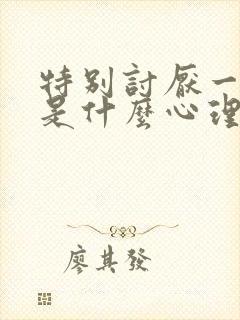 特別討厭一
是什麼心理
廖其發